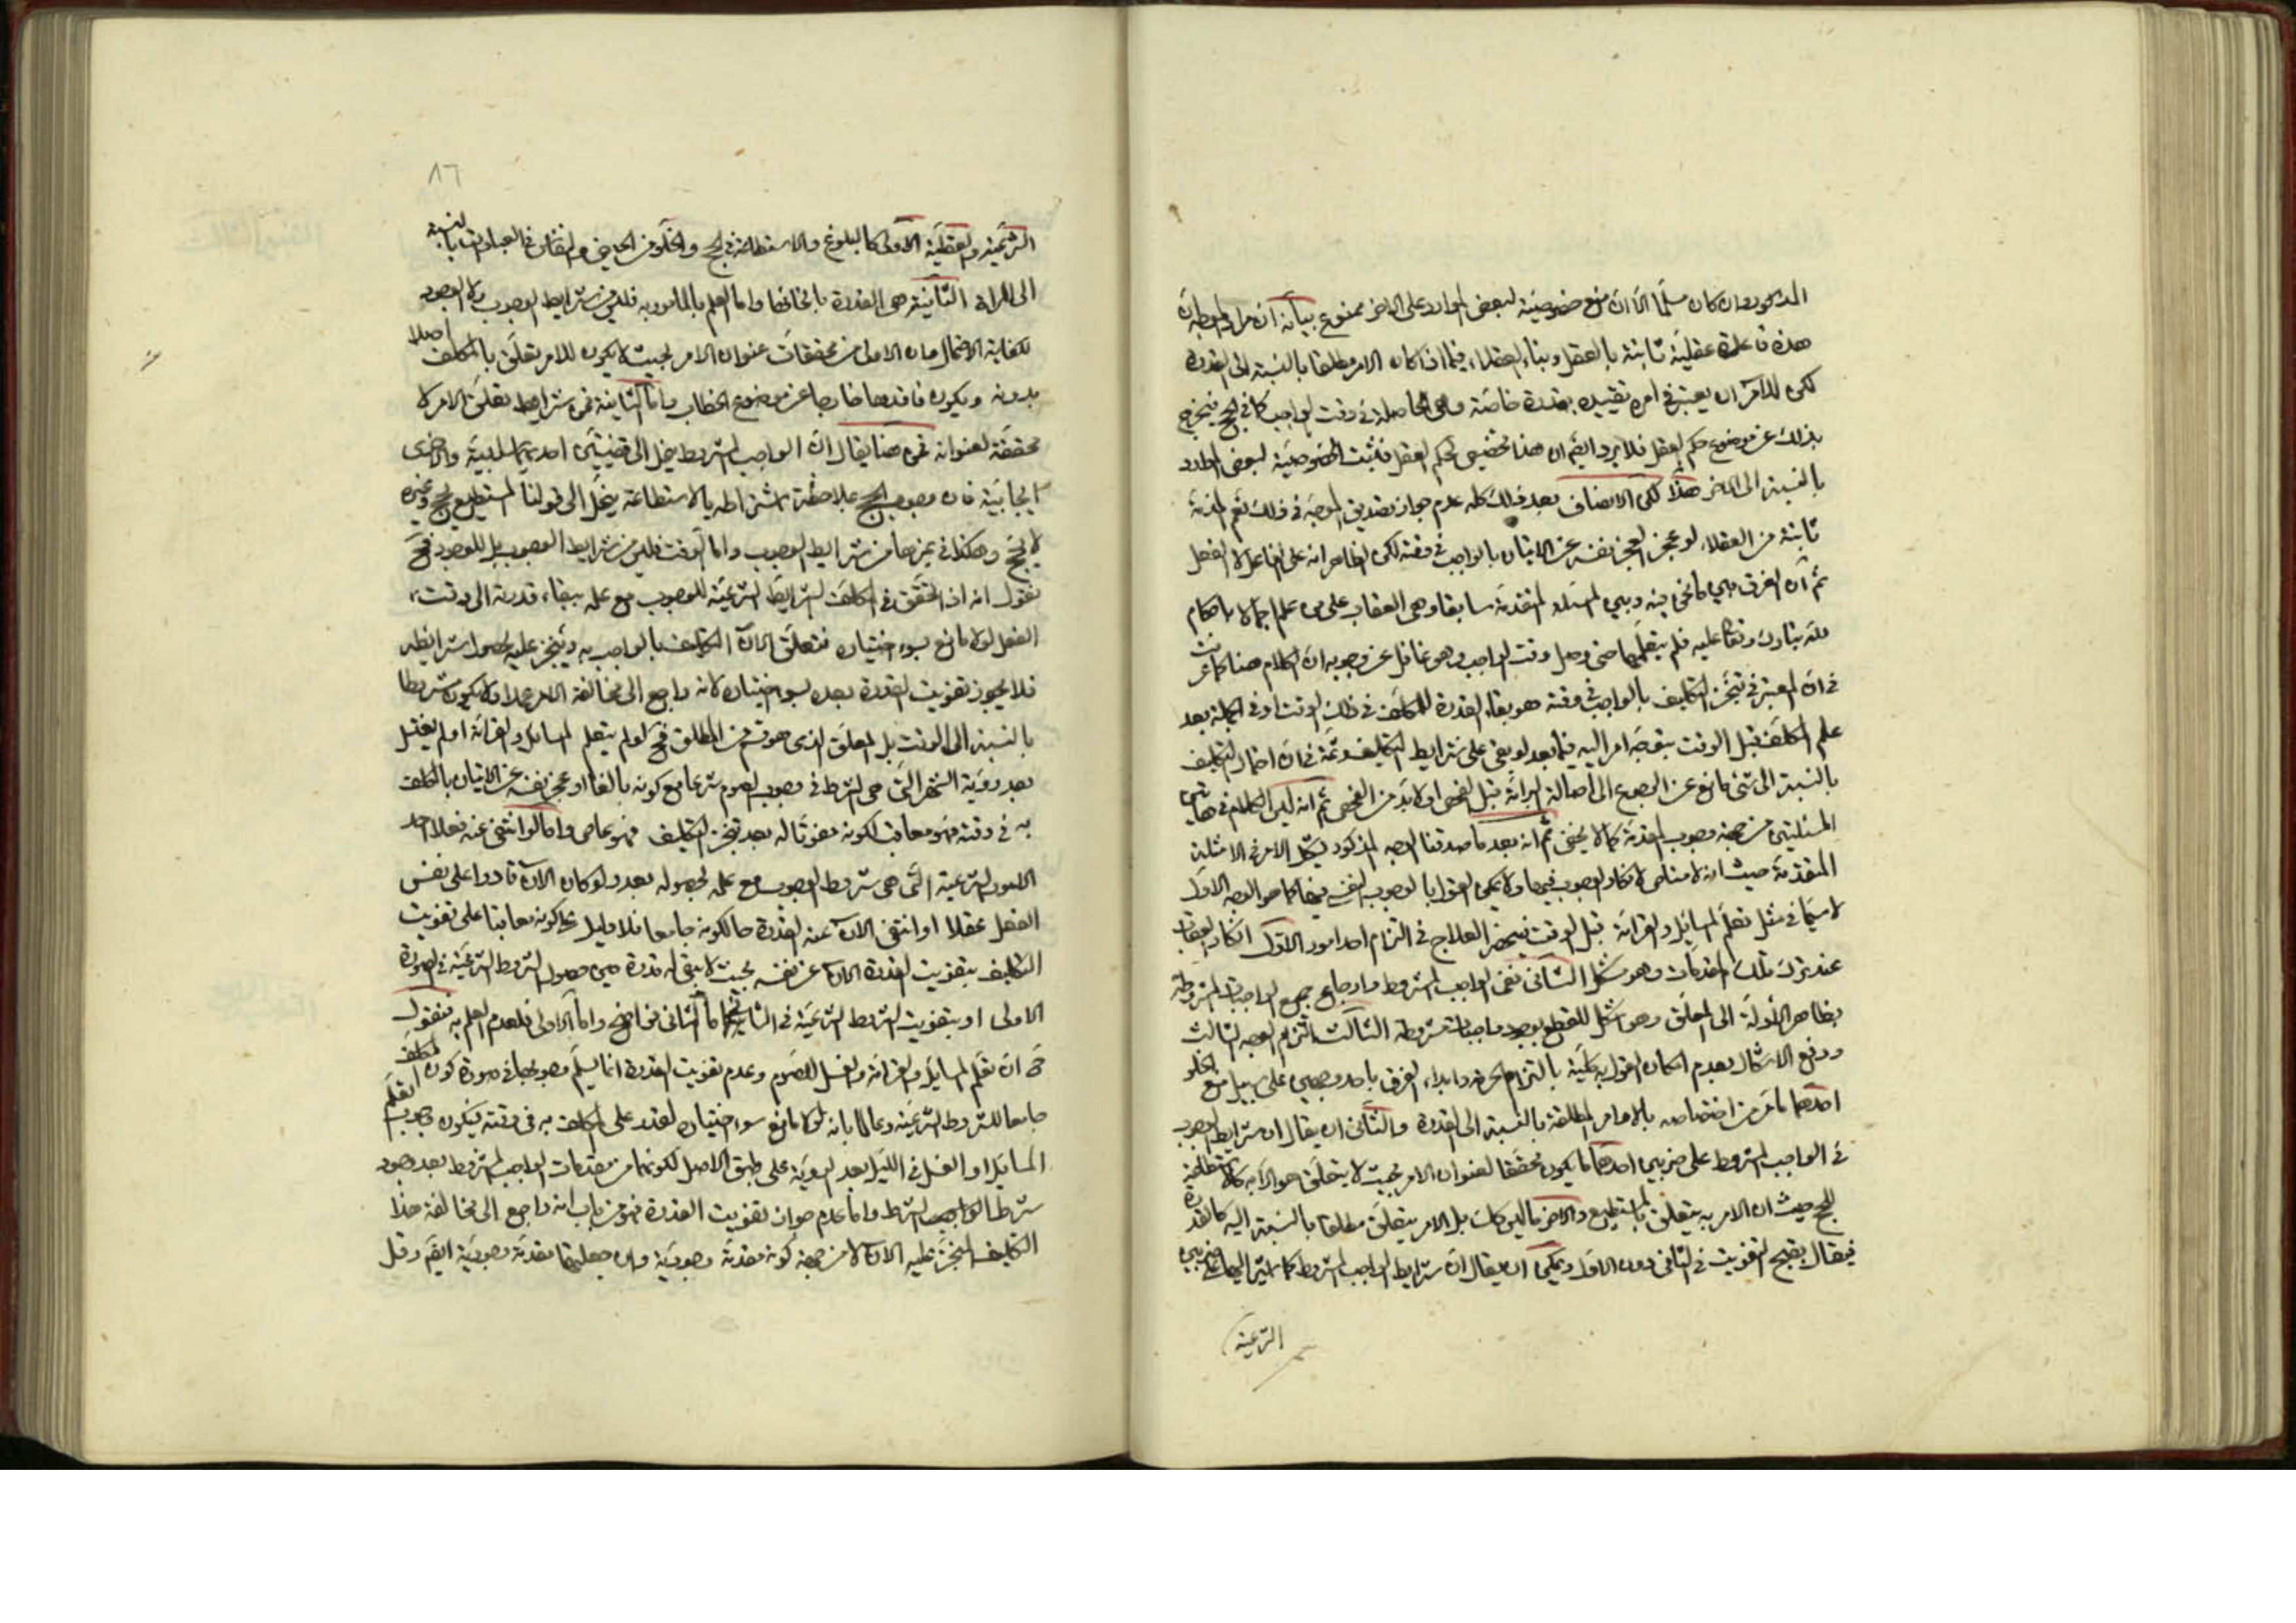 المذكور وان كان مسلما الا ان منع خصوصية لبعض الموارد على الاخر ممنوع بيانه ان مراد
هذه قاعدة عقلية ثابتة بالعقل وبناء العقلاء فيما اذا كان الامر مطلقا بالنسبة الى القدرة
لكن للامر ان يعتبر في امره تقييده بقدرة خاصة وهى الحاصلة في وقت الواجب كما في الحج فيخرج
بذلك عن موضوع حكم العقل فلا يرد ايضا ان هذا تخصيص لحكم العقل فثبت الخصوصية لبعض الموارد
بالنسبة الى الاخر هذا لكن الانصاف بعد ذلك كله عدم جواز تصديق الموجه في ذلك نعم المذمة
ثابتة من العقلاء لو عجز العجز نفسه عن الاتيان بالواجب في وقته لكن الظاهر انه على الفاعل لا الفعل
ثم ان الفرق بين ما نحن فيه وبين المسئلة المتقدمة سابقا وهى العقاب على من علم اجمالا باحكام
فلم يتعلمها حتى دخل وقت الواجب وهو غافل عن وجوبه ان الكلام هنا
في ان المعتبر في تنجز التكليف بالواجب في وقته هو بقاء القدرة للمكلف في ذلك الوقت او في الجملة بعد
علم المكلف قبل الوقت بتوجه امر اليه فيما بعد لو بقى على شرايط التكليف وثمة في ان احتمال التكليف
بالنسبة الى شئ مانع عن الرجوع الى اصالة البرائة قبل الفحص او لابد من الفحص ثم انه ليس الكلام في هاتين
المسئلتين من جهة وجوب المقدمة كما لا يخفى ثم انه بعد ما صدقنا الوجه المذكور يشكل الامر في الامثلة
المتقدمة حيث انه لا مناص لانكار الوجوب فيها ولا يمكن القول بالوجوب النفسى فيها كما هو الوجه الاول
لاسيما في مثل تعلم المسائل والقرائة قبل الوقت فينحصر العلاج في التزام احد امور الاول انكار العقاب
عند ترك تلك المقدمات وهو مشكل الثانى نفى الواجب المشروط وارجاع جميع الواجبات المشروطة
بظاهر الادلة الى المعلق وهو اشكل للقطع بوجود واجبات مشروطة الثالث التزام الوجه الثالث
ودفع الاشكال بعدم امكان القول بكلية بالتزام وابداء الفرق باحد وجهين على سبيل منع الخلو
احدهما ما مر من اختصاصه بالاوامر المطلقة بالنسبة الى القدرة والثانى ان يقال ان شرايط الوجوب
في الواجب المشروط على ضربين احدهما ما يكون محققا لعنوان الامر بحيث لا يتعلق هو الا به كالاستطاعة
للحج حيث ان الامر به يتعلق بالمستطيع والاخر ما ليس كذلك بل الامر يتعلق مطلقا بالنسبة اليه كالقدرة
فيقال بقبح التفويت في الثانى دون الاول ويمكن ان يقال ان شرايط الواجب المشروط كما اشير اليها على ضربين
الشرعية
٨٦
الشرعية والعقلية الاولى كالبلوغ والاستطاعة في الحج والخلو من الحيض والنفاس في العبادات بالنسبة
الى المراة الثانية هى القدرة بانحائها واما العلم بالمامور به فليس من شرايط الوجوب ولا الوجود
لكفاية الاحتمال وان الاولى من محققات عنوان الامر بحيث لا يكون للامر تعلق بالمكلف اصلا
بدونه ويكون فاقدها خارجا عن موضوع الخطاب واما الثانية فمن شرايط تعلق الامر لا
محققة لعنوانه فمن هنا يقال ان الواجب المشروط ينحل الى قضيتين احديهما سلبية والاخرى
ايجابية فان وجوب الحج بملاحظة اشتراطه بالاستطاعة ينحل الى قولنا المستطيع يحج وغيره
لا يحج وهكذا في غيرها من شرايط الوجوب واما الوقت فليس من شرايط الوجوب بل للوجود فح
نقول انه اذا تحقق في المكلف الشرايط الشرعية للوجوب مع علمه ببقاء قدرته الى وقت
الفعل لولا مانع بسوء اختياره فتعلق الان التكليف بالواجب به وتنجز عليه لحصول شرايطه
فلا يجوز تفويت القدرة بعده بسوء اختياره لانه راجع الى مخالفة الامر عمدا ولا يكون مشروطا
بالنسبة الى الوقت بل المعلق الذى هو قسم من المطلق فح لو لم يتعلم المسائل والقرائة او لم يغتسل
بعد رؤية الشهر التى هى الشرط في وجوب الصوم شرعا مع كونه بالغا او عجز نفسه عن الاتيان بالمكلف
به في وقته فهو معاقب لكونه مفوتا له بعد تنجز التكليف فهو عاص واما لو انتفى عنه فعلا احد
الامور الشرعية التى هى شروط الوجوب مع علمه بحصوله بعد ولو كان الان قادرا على نفس
الفعل عقلا او انتفى الان عنه القدرة حال كونه جامعا فلا دليل على كونه معاقبا على تفويت
التكليف بتفويت القدرة الان عن نفسه بحيث لا يبقى له قدرة حين حصول الشروط الشرعية في الصورة
الاولى او بتفويت الشروط الشرعية في الثانية اما الثانى فواضح واما الاولى فلعدم العلم به فنقول
ح ان تعلم المسائل والقرائة والغسل للصوم وعدم تفويت القدرة انما يسلم وجوبها في صورة كون المكلف
جامعا للشروط الشرعية وعالما بانه لولا مانع سوء اختياره لقدر على المكلف به في وقته فيكون وجوب تعلم
المسايل او الغسل في الليل بعد الرؤية على طبق الاصل لكونهما من مقدمات الواجب المشروط بعد وجود
شرط الواجب واما عدم جواز تفويت القدرة فهو من باب انه راجع الى مخالفة هذا
التكليف المنجز عليه الان لا من جهة كونه مقدمة وجوبية وان جعلهما مقدمة وجودية ايضا وقبل